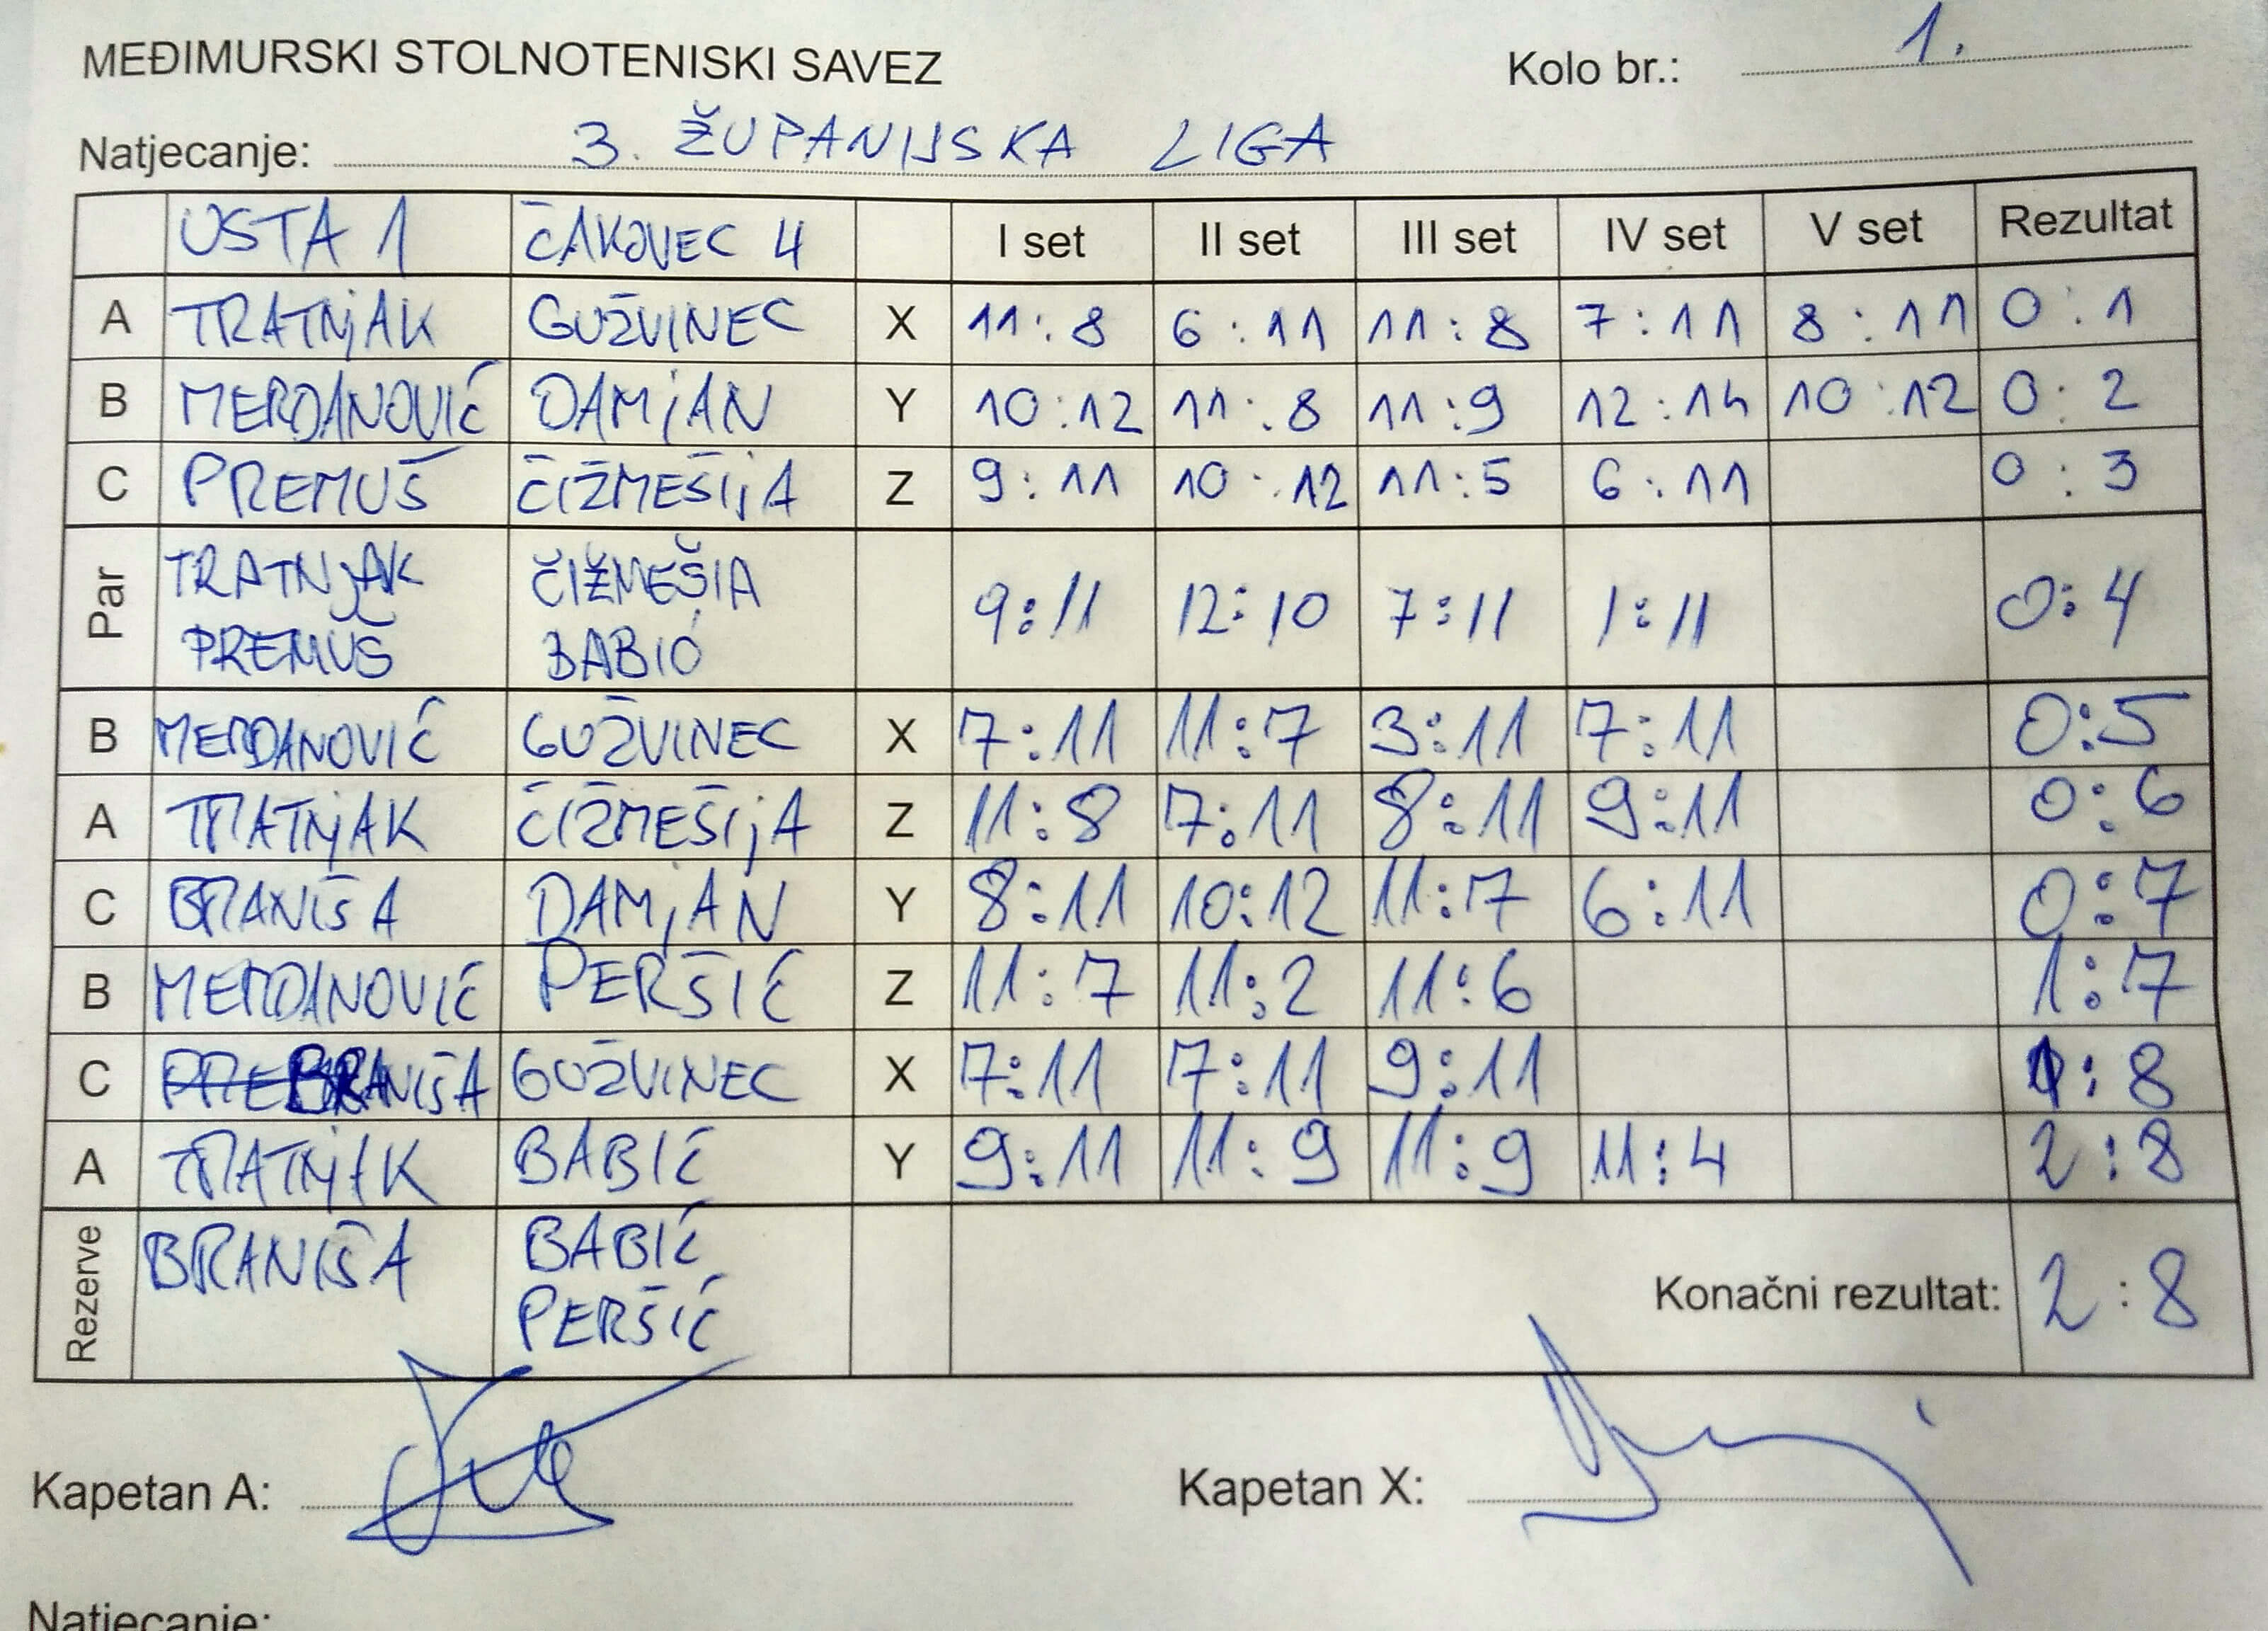 MEĐIMURSKI STOLNOTENISKI SAVEZ Kolo br.: 1.
Natjecanje: 3. ŽUPANIJSKA LIGA
USTA 1 ČAKOVEC 4 I set II set III set IV set V set Rezultat
A TRATNJAK GOŽVINEC X 11:8 6:11 11:8 7:11 8:11 0:1
B MERDANOVIĆ DAMJAN Y 10:12 11:8 11:9 12:14 10:12 0:2
C PREMUŠ ČIŽMEŠIJA Z 9:11 10:12 11:5 6:11 0:3
Par TRATNJAK ČIŽMEŠIA 9:11 12:10 7:11 1:11 0:4
PREMUŠ BABIĆ
B MERDANOVIĆ GOŽVINEC X 7:11 11:7 3:11 7:11 0:5
A TRATNJAK ČIŽMEŠIJA Z 11:8 7:11 8:11 9:11 0:6
C BRANIŠA DAMJAN Y 8:11 10:12 11:7 6:11 0:7
B MERDANOVIĆ PERŠIĆ Z 11:7 11:2 11:6 1:7
C BRANIŠA GOŽVINEC X 7:11 7:11 9:11 1:8
A TRATNJAK BABIĆ Y 9:11 11:9 11:9 11:4 2:8
Rezerve BRANIŠA BABIĆ
PERŠIĆ
Konačni rezultat: 2:8
Kapetan A: Kapetan X:
Natjecanje: